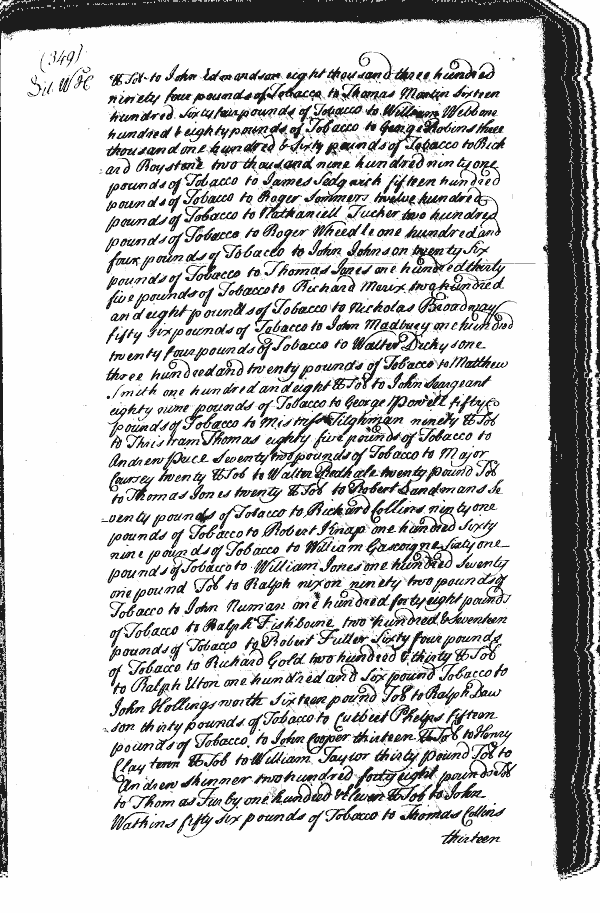 (349)
Lib. W H C
lb Tob to John Edmondson eight thousand three hundred
ninety four pounds of Tobacco to Thomas Martin Sixteen
hundred Sixty four pounds of Tobacco to William Webb one
hundred & eighty pounds of Tobacco to George Robins three
thousand one hundred & Sixty pounds of Tobacco to Rich
ard Roystone two thousand nine hundred ninty one
pounds of Tobacco to James Sedgwick fifteen hundred
pounds of Tobacco to Roger Sommers twelve hundred
pounds of Tobacco to Nathaniell Tucker two hundred
pounds of Tobacco to Roger Wheedle one hundred and
four pounds of Tobacco to John Johnson twenty Six
pounds of Tobacco to Thomas Jones one hundred thirty
five pounds of Tobacco to Richard two hundred
and eight pounds of Tobacco to Nicholas Broadway
fifty six pounds of Tobacco to John Madbury one hundred
twenty four pounds of Tobacco to Walter Dickys one
three hundred and twenty pounds of Tobacco to Matthew
Smith one hundred and eight lb Tob to John Seargeant
eighty nine pounds of Tobacco to George Powell fifty
pounds of Tobacco to Mistriss Tilghman ninety lb Tob
to Thristram Thomas eighty five pounds of Tobacco to
Andrew Price Seventy two pounds of Tobacco to Major
Coursey twenty lb Tob to Walter twenty pound Tob
to Thomas Jones twenty lb Tob to Robert Sandmans Se
venty pounds of Tobacco to Richard Collins ninty one
pounds of Tobacco to Robert Knap one hundred Sixty
nine pounds of Tobacco to William Gascoigne Sixty one
pounds of Tobacco to William Jones one hundred Seventy
one pound Tob to Ralph nixon ninety two pounds of
Tobacco to John Numan one hundred forty eight pounds
of Tobacco to Ralph Fishbourne two hundred & Seventeen
pounds of Tobacco to Robert Fuller Sixty four pounds
of Tobacco to Richard Gold two hundred & thirty lb Tob
to Ralph Elton one hundred and Six pound Tobacco to
John Hollingsworth Sixteen pound Tob to Ralph Daw
son thirty pounds of Tobacco to Cutbert Phelps fifteen
pounds of Tobacco to John Cooper thirteen lb Tob to Henry
Clay tonn lb Tob to William Taylor thirty pound Tob to
Andrew Skinner two hundred forty eight pounds Tob
to Thomas Furby one hundred & Eleven lb Tob to John
Watkins fifty six pounds of Tobacco to Thomas Collins
thirteen